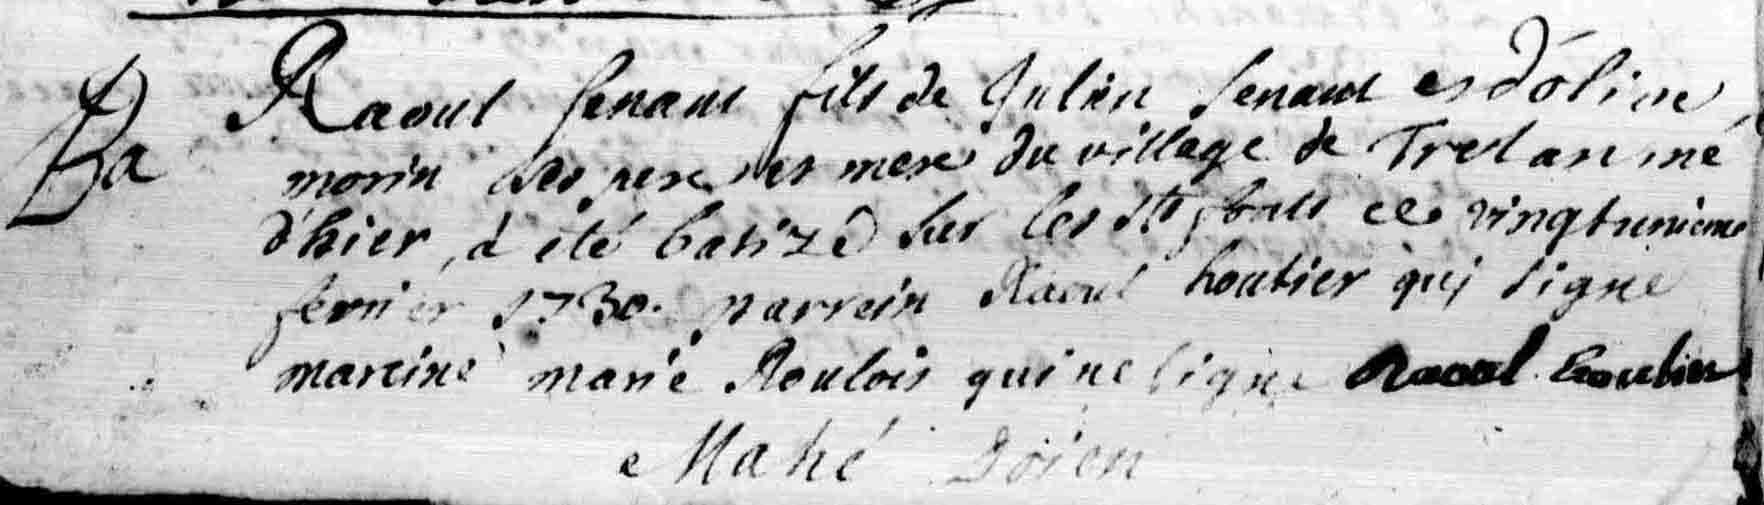 Ba
Raoul Senant fils de Julien Senant et d'olive
morin ses pere et mere du village de Treslan né
d'hier, à été batizé sur les sts fonts ce vingtunieme
fevrier 1730. parrein Raoul houtier qui signe
mareine marie Roulois qui ne signe Raoul houtier
Mahé Doien